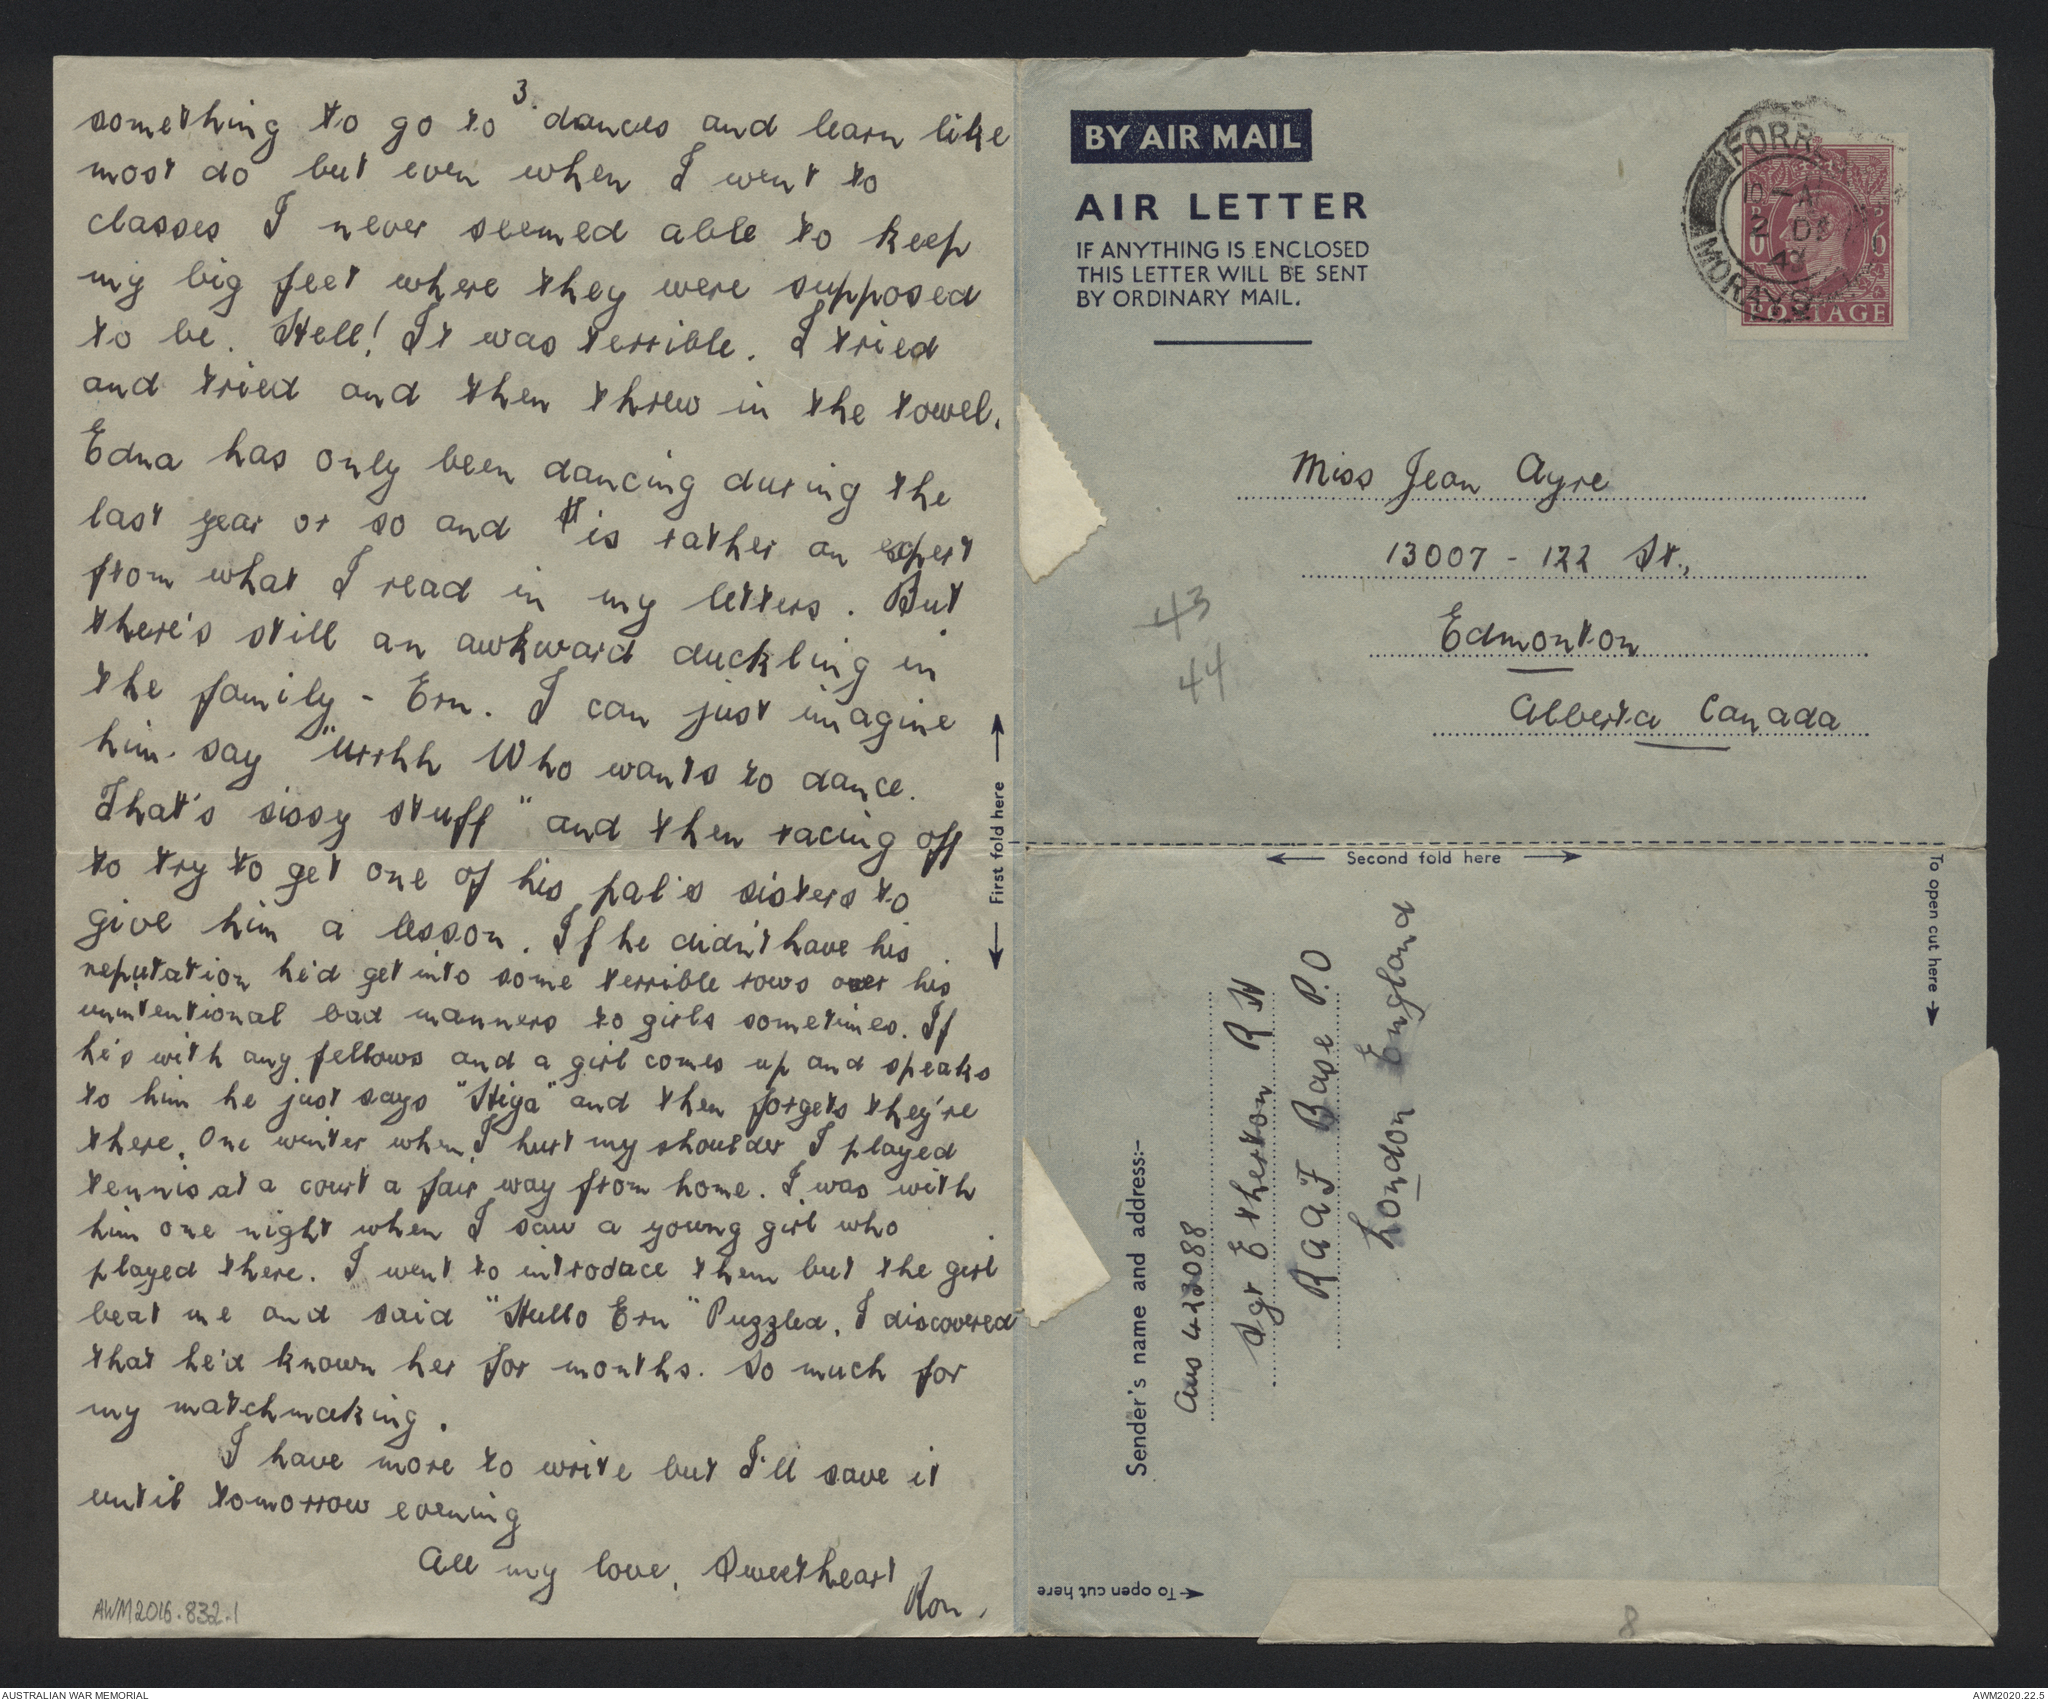 3.
something to go to dances and learn like
most do but even when I went to
classes I never seemed able to keep
my big feet where they were supposed
to be. Hell! It was terrible. I tried
and tried and then threw in the towel.
Edna has only been dancing during the
last year or so and is rather an expert
from what I read in my letters. But
there's still an awkward duckling in
the family - Ern. I can just imagine
him say "Urrhh Who wants to dance.
That's sissy stuff" and then racing off
to try to get one of his pal's sisters to
give him a lesson. If he didn't have his
reputation he'd get into some terrible rows over his
unintentional bad manners to girls sometimes. If
he's with any fellows and a girl comes up and speaks
to him he just says "Hiya" and then forgets they're
there. One winter when I hurt my shoulder I played
tennis at a court a fair way from home. I was with
him one night when I saw a young girl who
played there. I went to introduce them but the girl
beat me and said "Hullo Ern" Puzzled, I discovered
that he'd known her for months. So much for
my matchmaking.
I have more to write but I'll save it
until tomorrow evening
All my love, Sweetheart
Ron.
AWM2016.832.1
First fold here
BY AIR MAIL
AIR LETTER
IF ANYTHING IS ENCLOSED
THIS LETTER WILL BE SENT
BY ORDINARY MAIL.
FORR
MORAYS
POSTAGE
Miss Jean Ayre
13007 - 122 St.,
Edmonton
Alberta Canada
43
44
Second fold here
To open cut here
Sender's name and address:-
Aus 423088
Sgt Etherton R N
RAAF Base P.O
London England
To open cut here
8
AUSTRALIAN WAR MEMORIAL
AWM2020.22.5